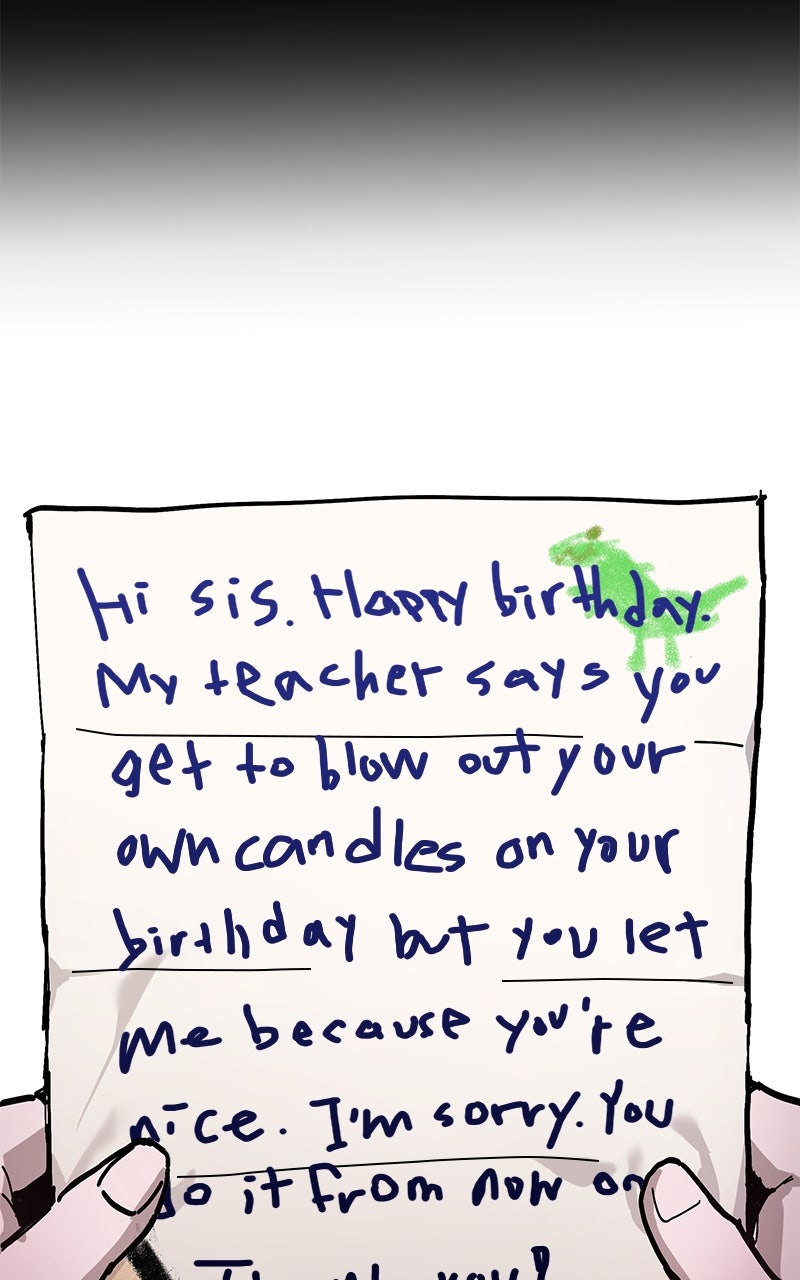 Hi sis. Happy birthday.
My teacher says you
get to blow out your
own candles on your
birthday but you let
me because you're
nice. I'm sorry. You
do it from now on